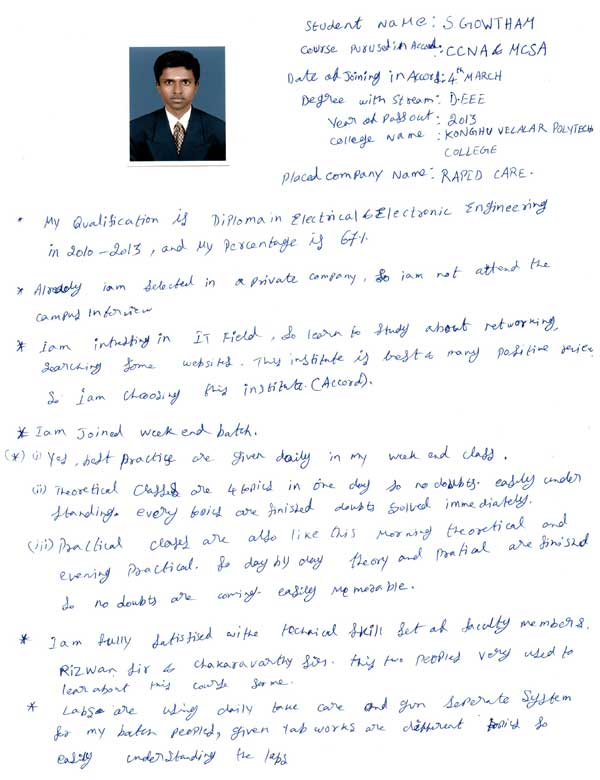 Student Name: S. GOWTHAM
Course Purused in Accord: CCNA & MCSA
Date of Joining in Accord: 4th MARCH
Degree with Stream: D.EEE
Year of Passout: 2013
College Name: KONGHU VELALAR POLYTECH
COLLEGE
Placed company Name: RAPID CARE.
* My Qualification is Diploma in Electrical & Electronic Engineering
in 2010-2013, and My Percentage is 67%
* Already iam selected in a private company, So iam not attend the
campus Interview
* Iam intrusting in IT Field, So learn to study about networking,
Searching Some websites. This institute is best & many positive review
So iam choosing this institute. (Accord).
* Iam Joined week end batch.
(*) (i) Yes, best practice are given daily in my week end class.
(ii) Theoretical Classes are 4 topics in one day so no doubts. easily under
standing. every topics are finished doubts solved immediately.
(iii) Practical clases are also like this Morning theoretical and
evening Practical. So day by day theory and pratial are finished
So no doubts are coming. easily Memorable.
* Iam fully Satisfied withe technical skill set of faculty members.
Rizwan Sir & Chakaravarthy Sir. this two peoples very used to
lear about this course for me.
* Labs are using daily take care and givn Seperate System
for my batch peoples, given lab works are different topics so
easily understanding the labs